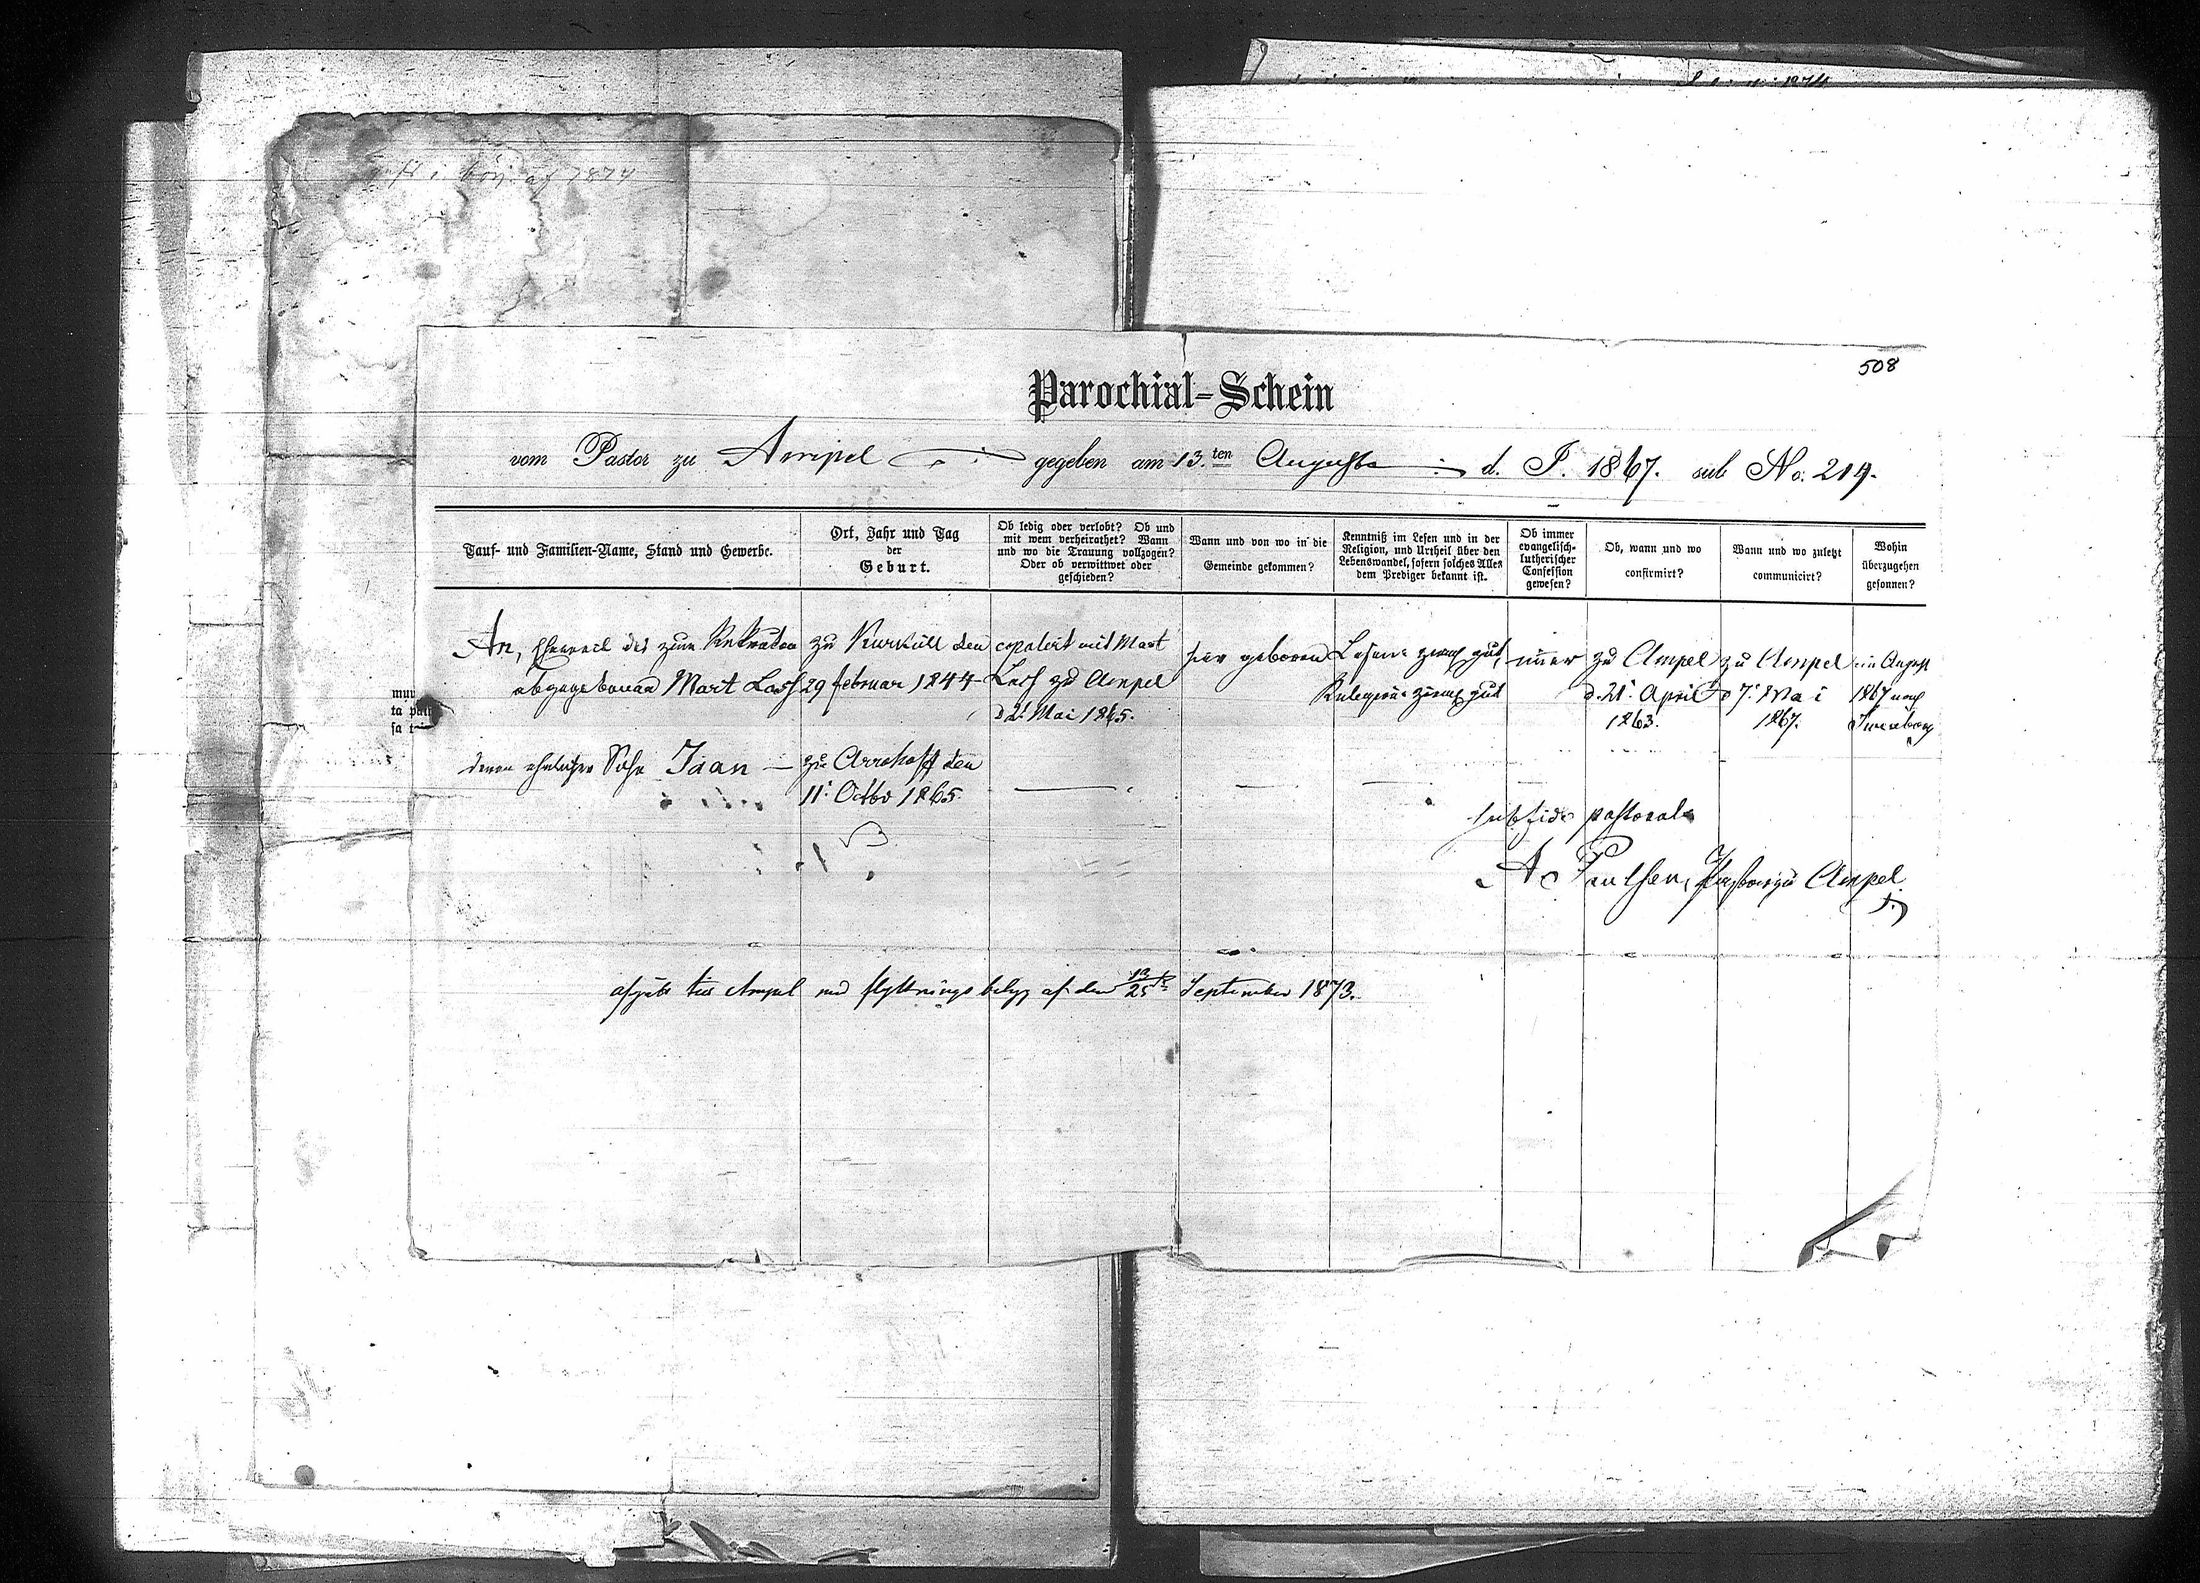 508
Parochial-Schein
vom Pastor zu Ampel gegeben am 13.ten August d. J. 1867. sub No. 219.
Tauf- und Familien-Name, Stand und Gewerbe.
Ort, Jahr und Tag
der
Geburt.
Ob ledig oder verlobt? Ob und
mit wem verheirathet? Wann
und wo die Trauung vollzogen?
Oder ob verwittwet oder
geschieden?
Wann und von wo in die
Gemeinde gekommen?
Kenntniß im Lesen und in der
Religion, und Urtheil über den
Lebenswandel, sofern solches Alles
dem Prediger bekannt ist.
Ob immer
evangelisch-
lutherischer
Confession
gewesen?
Ob, wann und wo
confirmirt?
Wann und wo zuletzt
communicirt?
Wohin
überzugehen
gesonnen?
An, Eheweib des zum Rekruten
abgegebenen Mart Lass
zu Kurküll den
29 februar 1844
copulirt mit Mart
Lass zu Ampel
d 2. Mai 1865.
hier geboren
Lesen ziemł gut,
Religion ziemł gut
immer
zu Ampel
d. 21. April
1863.
zu Ampel
d 7. Mai
1867.
im August
1867 nach
deren ehelicher Sohn Jaan
zu Arrohoff den
11. Octbr 1865.
sub fide pastorali
A Paulsen, Pastor zu Ampel
afgått till Ampel med flyttningsbetyg af den 13/25 September 1873.